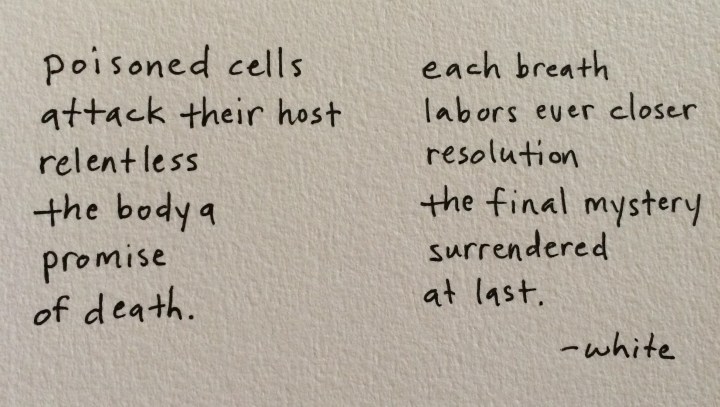 poisoned cells
attack their host
relentless
the body a
promise
of death.
each breath
labors ever closer
resolution
the final mystery
surrendered
at last.
-white